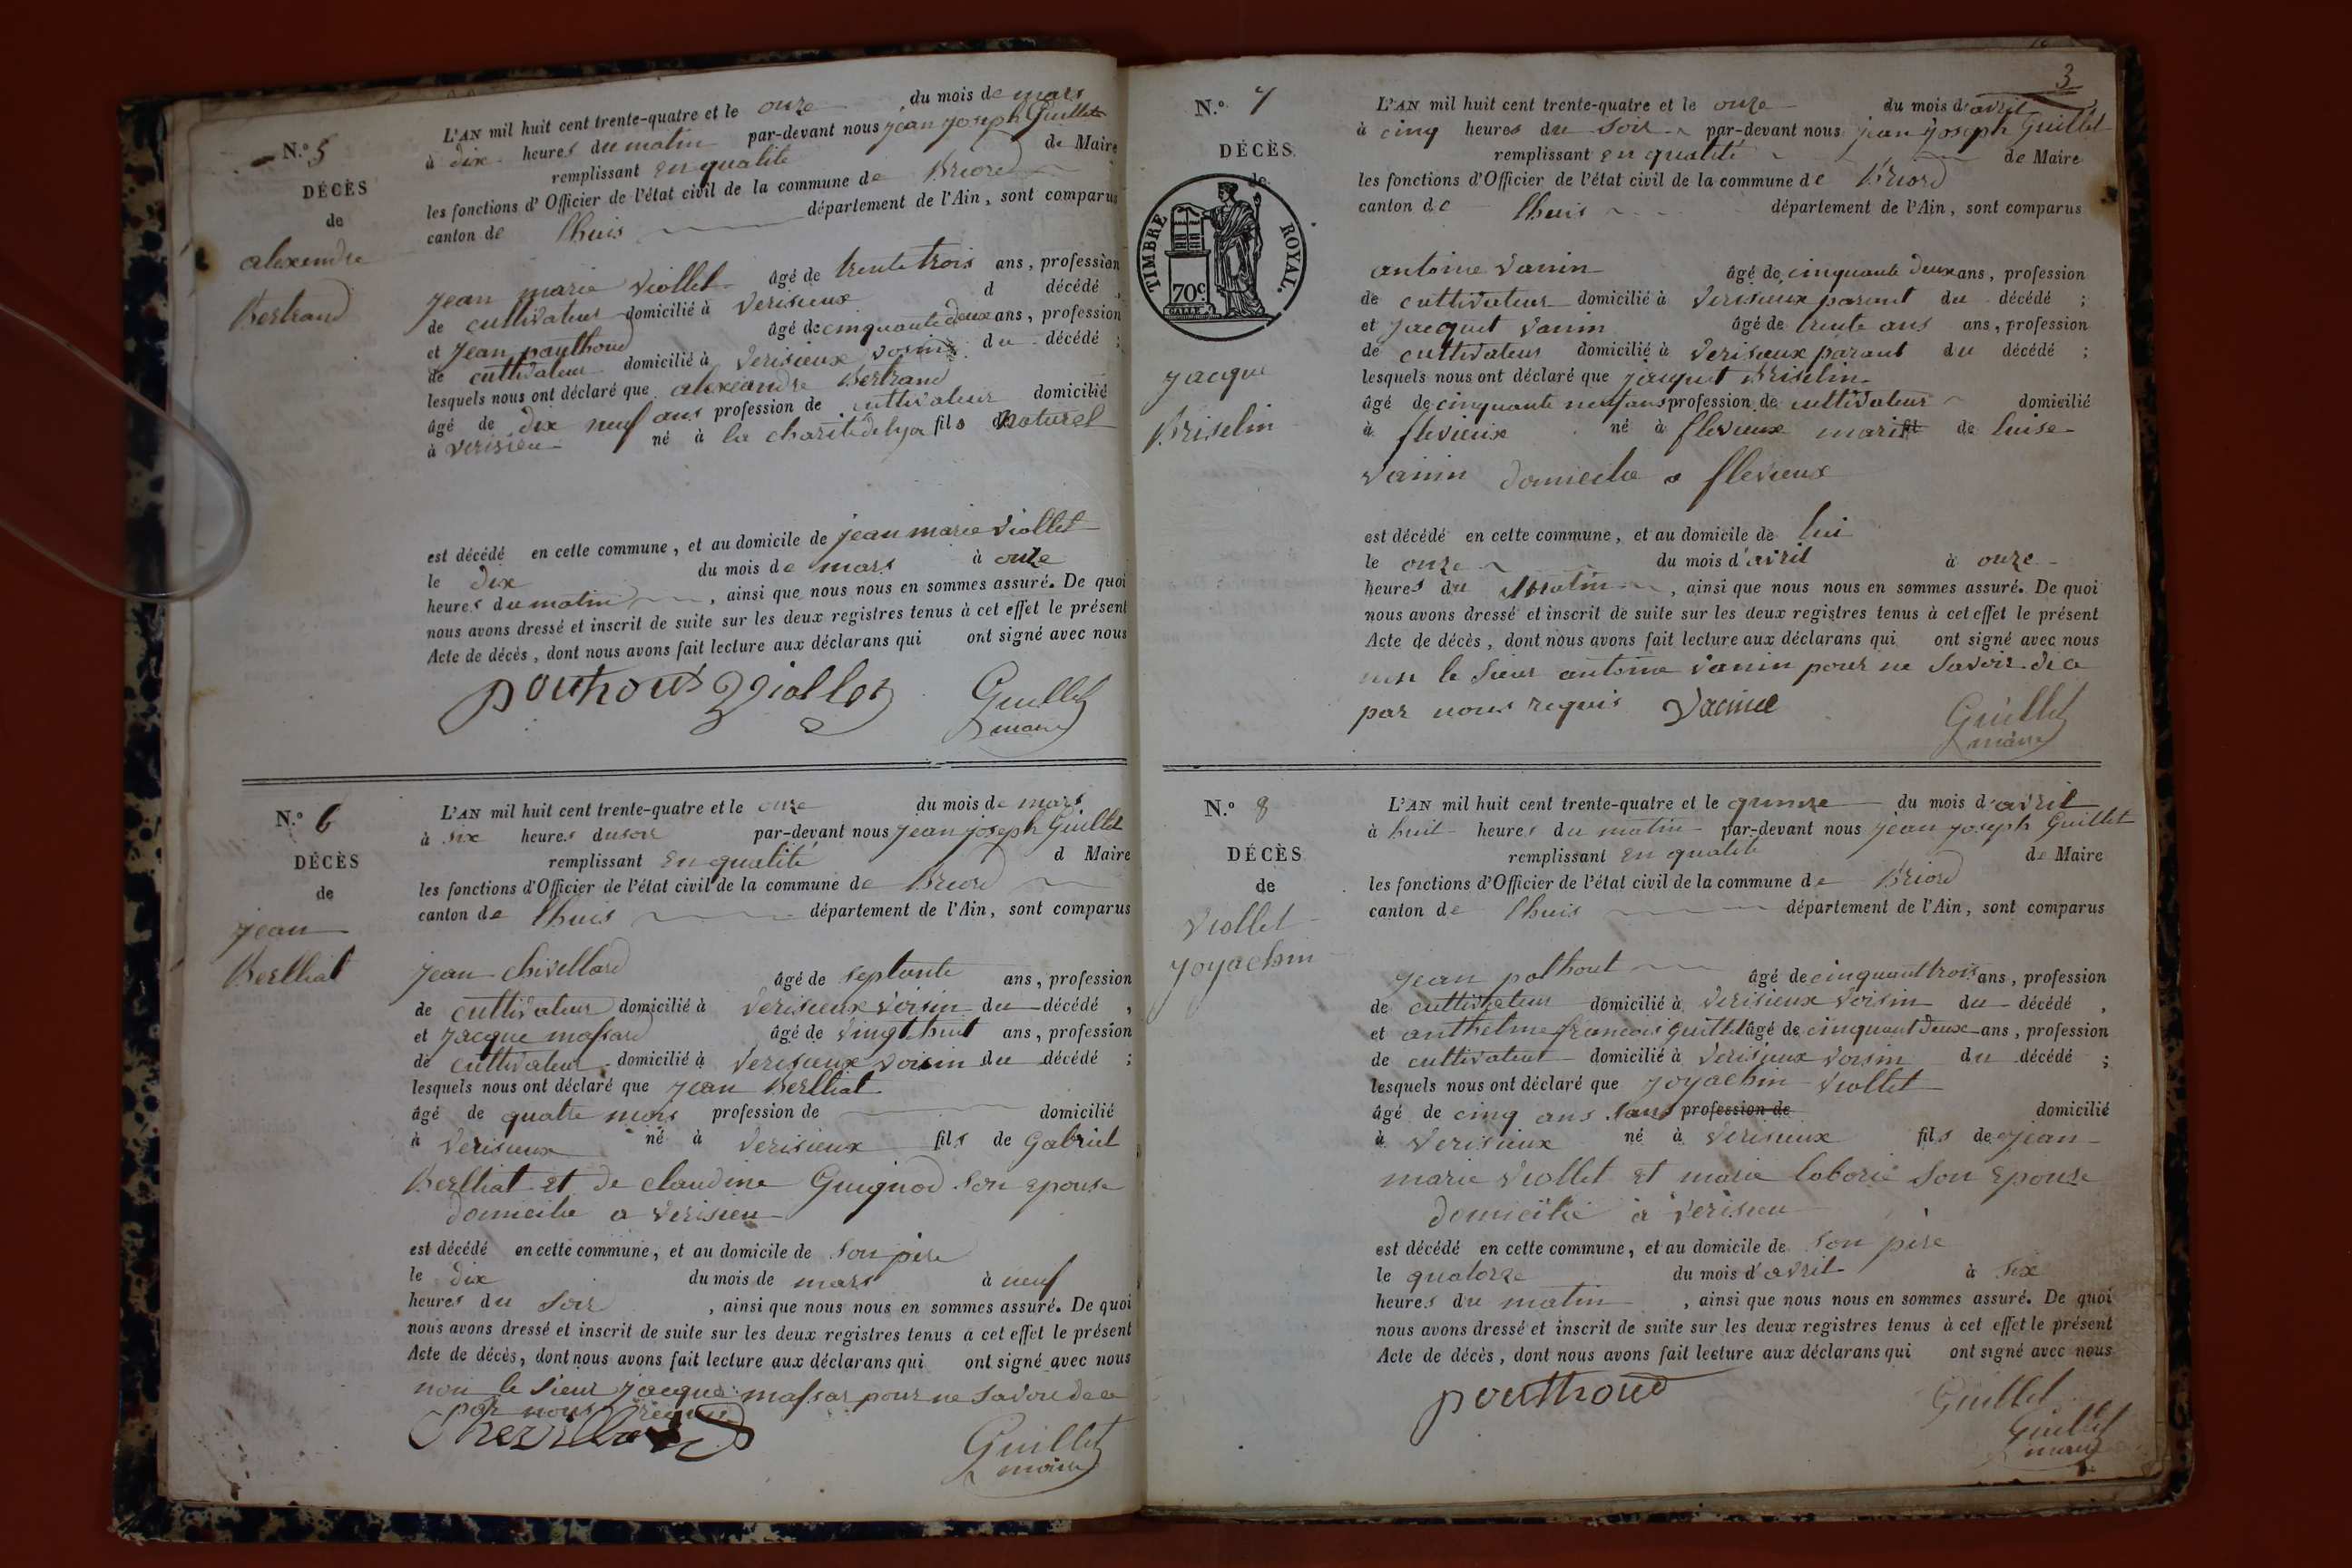 N.º 5
DÉCÈS
de
alexendre
Bertrand
L'AN mil huit cent trente-quatre et le onze du mois de mars
à dix heures du matin par-devant nous jean joseph Guillet
remplissant en qualité de Maire
les fonctions d'Officier de l'état civil de la commune de Briord
canton de lhuis département de l'Ain, sont comparus
jean marie Viollet âgé de trente trois ans, profession
de cultivateur domicilié à Verisieux d décédé ,
et jean pauthoud âgé de cinquante deux ans, profession
de cultivateur domicilié à Verisieux Vosin du décédé ;
lesquels nous ont déclaré que alexeandre Bertrand
âgé de dix neuf ans profession de cultivateur domicilié
à Verisieu né à la charité de lyon fils naturel
est décédé en cette commune, et au domicile de jean marie Viollet
le dix du mois de mars à onze
heures du matin , ainsi que nous nous en sommes assuré. De quoi
nous avons dressé et inscrit de suite sur les deux registres tenus à cet effet le présent
Acte de décès, dont nous avons fait lecture aux déclarans qui ont signé avec nous
pouthoud Viollet Guillet
maire
N.º 6
DÉCÈS
de
jean
Berlliat
L'AN mil huit cent trente-quatre et le onze du mois de mars
à six heures du soir par-devant nous jean joseph Guillet
remplissant en qualité d Maire
les fonctions d'Officier de l'état civil de la commune de Briord
canton de lhuis département de l'Ain, sont comparus
jean chivellard âgé de septante ans, profession
de cultivateur domicilié à Verisieux Voisin du décédé ,
et jacque massard âgé de vingt huit ans, profession
de cultivateur domicilié à Verisieux Voisin du décédé ;
lesquels nous ont déclaré que jean Berlliat
âgé de quatre mois profession de domicilié
à Verisieux né à Verisieux fils de Gabriel
Berlliat et de claudine Guignod son epouse
domicilie a Verisieu
est décédé en cette commune, et au domicile de son père
le dix du mois de mars à neuf
heures du soir , ainsi que nous nous en sommes assuré. De quoi
nous avons dressé et inscrit de suite sur les deux registres tenus à cet effet le présent
Acte de décès, dont nous avons fait lecture aux déclarans qui ont signé avec nous
non le sieur jacque massar pour ne savoir de ce
par nous requis
Chevillard Guillet
maire
3
N.º 7
DÉCÈS
de
TIMBRE ROYAL.
70c
jacque
Briselin
L'AN mil huit cent trente-quatre et le onze du mois d'avril
à cinq heures du soir par-devant nous jean joseph Guillet
remplissant en qualité de Maire
les fonctions d'Officier de l'état civil de la commune de Briord
canton de lhuis département de l'Ain, sont comparus
antoine Vanin âgé de cinquante deux ans, profession
de cultivateur domicilié à Verisieux parant du décédé ;
et jacquet Vanin âgé de trente ans ans, profession
de cultivateur domicilié à Verisieux parant du décédé ;
lesquels nous ont déclaré que jacquet Briselin
âgé de cinquante neuf ans profession de cultivateur domicilié
à flevieux né à flevieux mari de luise
Vanin domicilie a flevieux
est décédé en cette commune, et au domicile de lui
le onze du mois d'avril à onze
heures du matin , ainsi que nous nous en sommes assuré. De quoi
nous avons dressé et inscrit de suite sur les deux registres tenus à cet effet le présent
Acte de décès, dont nous avons fait lecture aux déclarans qui ont signé avec nous
non le sieur antoine Vanin pour ne savoir de ce
par nous requis Guillet
maire
N.º 8
DÉCÈS
de
Viollet
joyachin
L'AN mil huit cent trente-quatre et le quinze du mois d'avril
à huit heures du matin par-devant nous jean joseph Guillet
remplissant en qualité de Maire
les fonctions d'Officier de l'état civil de la commune de Briord
canton de lhuis département de l'Ain, sont comparus
jean pothout âgé de cinquant trois ans, profession
de cultivateur domicilié à Verisieux Voisin du décédé ,
et anthelme francois Guillet âgé de cinquant deux ans, profession
de cultivateur domicilié à Verisieux Voisin du décédé ;
lesquels nous ont déclaré que joyachin Viollet
âgé de cinq ans sans profession de domicilié
à Verisieux né à Verisieux fils de jean
marie Viollet et marie laborie son epouse
domicilié à Verisieu
est décédé en cette commune, et au domicile de son père
le quatorze du mois d'avril à six
heures du matin , ainsi que nous nous en sommes assuré. De quoi
nous avons dressé et inscrit de suite sur les deux registres tenus à cet effet le présent
Acte de décès, dont nous avons fait lecture aux déclarans qui ont signé avec nous
pouthoud Guillet
Guillet
maire